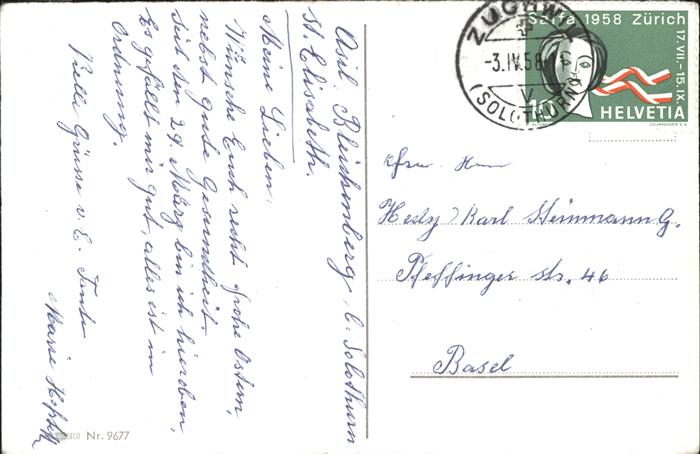 Asil Bleichenberg, b. Solothurn
St. Elisabeth.
Meine Lieben.
Wünsche Euch recht frohe Ostern,
nebst gute Gesundheit.
Seit den 29. März bin ich hieroben,
Es gefällt mir gut, alles ist in
Ordnung.
Viele Grüsse v. E. Tante
Marie
Nr. 9677
Saffa 1958 Zürich
17.VII.-15.IX.
HELVETIA
10
ZUCHWIL
-3.IV.58
(SOLOTHURN)
Karl Steinmann G.
Pfeffinger str. 46
Basel